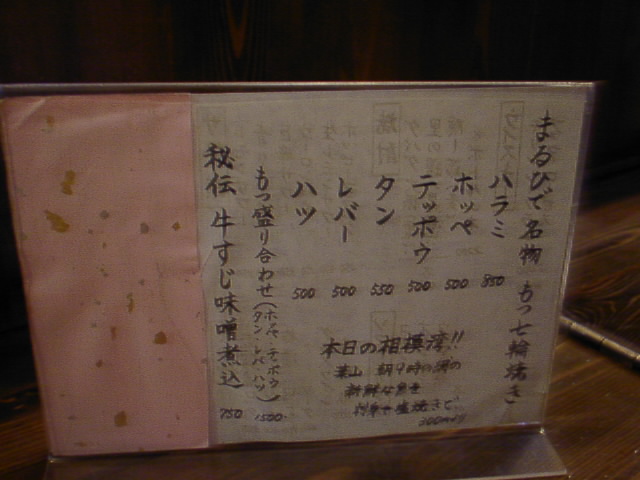 まるひで名物 もつ七輪焼き
ハラミ 850
ホッペ 500
テッポウ 500
タン 550
レバー 500
ハツ 500
もつ盛り合わせ(ホッペ・テッポウ タン・レバ・ハツ) 1500
秘伝 牛すじ味噌煮込 750
本日の相模湾!!
葉山 朝9時の網の
新鮮な魚を
刺身や塩焼きで